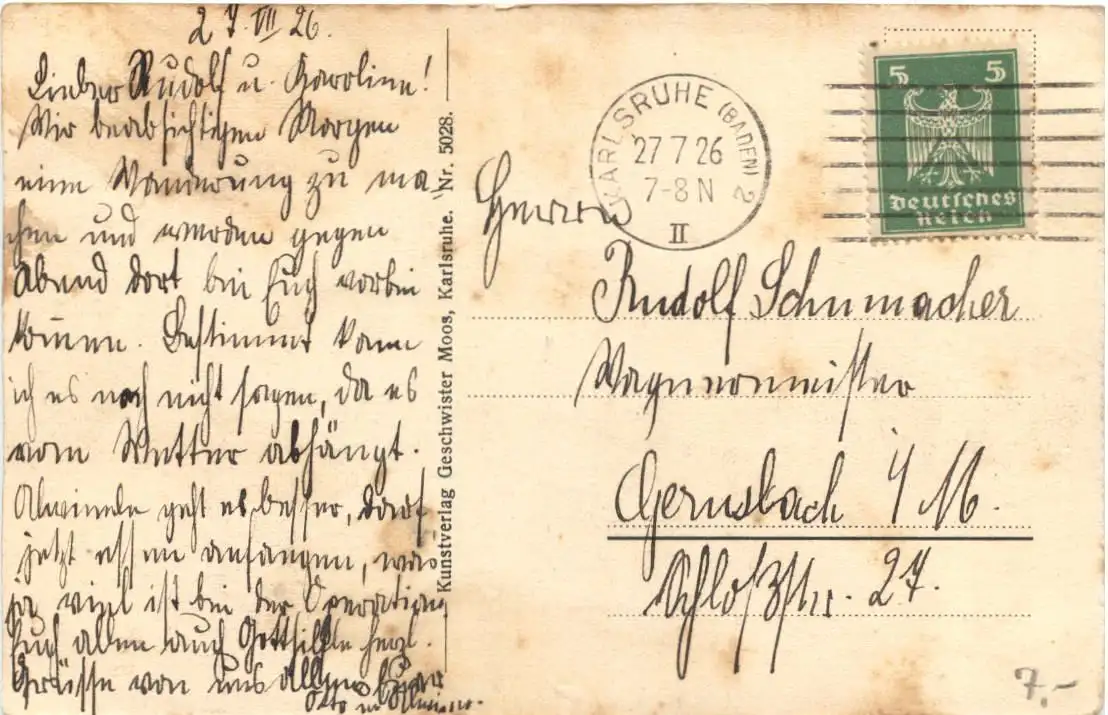 27 VII 26.
Lieber Rudolf u. Karoline!
Wir beabsichtigen Morgen
eine Wanderung zu ma
chen und werden gegen
Abend dort bei Euch vorbei
kommen. Bestimmt kann
ich es noch nicht sagen, da es
vom Wetter abhängt.
geht es besser, darf
jetzt essen anfangen, was
ja viel ist bei der Operation
Euch allen auch herzl.
Grüsse von uns allen Euer
Otto
Kunstverlag Geschwister Moos, Karlsruhe. Nr. 5028.
KARLSRUHE (BADEN) 2
27 7 26
7-8 N
II
5 5
Deutsches
Reich
Herrn
Rudolf Schumacher
Wagnermeister
Gernsbach i/M.
Schloßstr. 27.
7,-